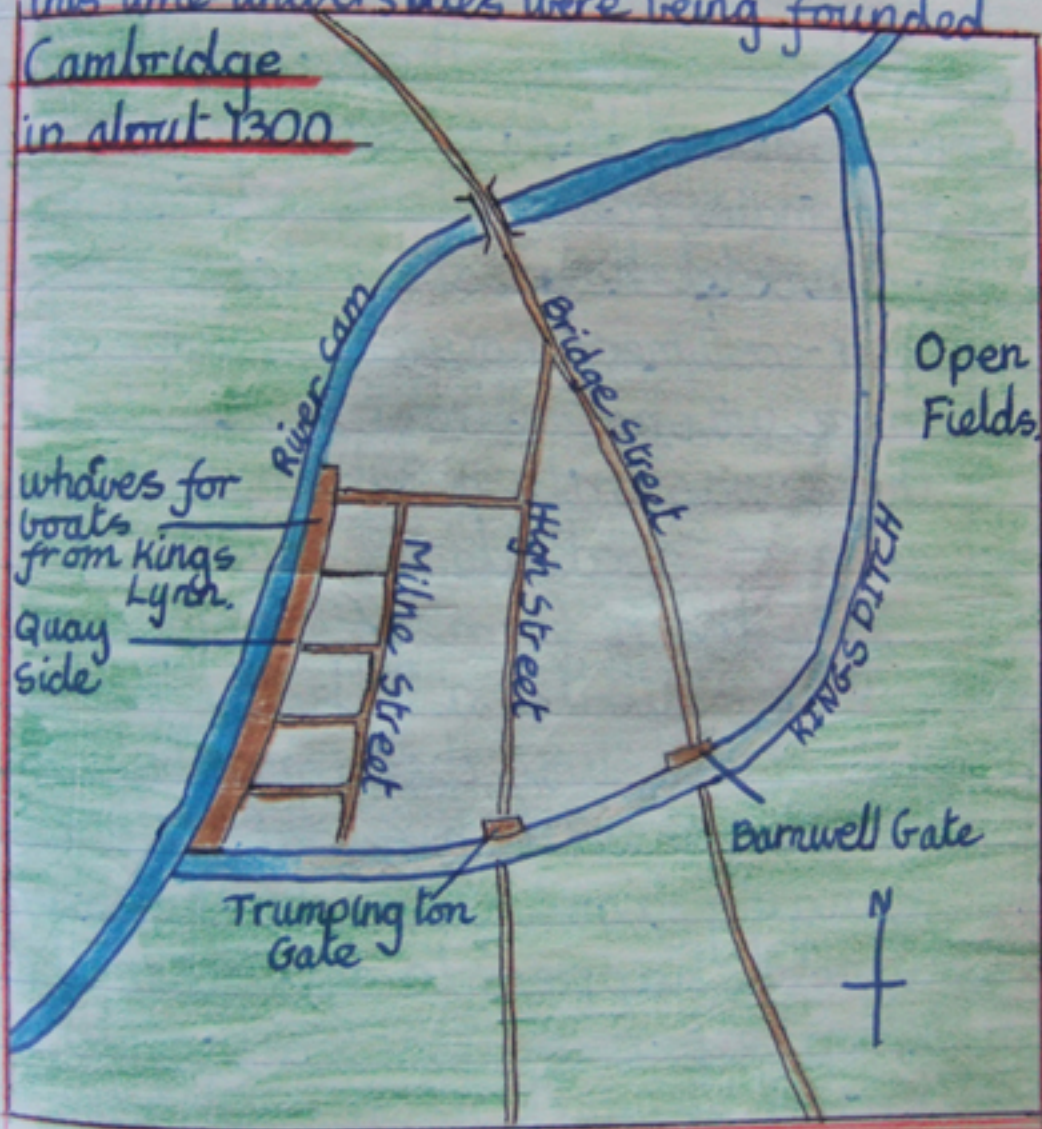 this time universities were being founded
Cambridge
in about 1300
River Cam
Bridge Street
Open
Fields.
wharves for
boats
from Kings
Lynn.
Quay
Side
Milne Street
High Street
KINGS DITCH
Barnwell Gate
Trumping ton
Gate
N